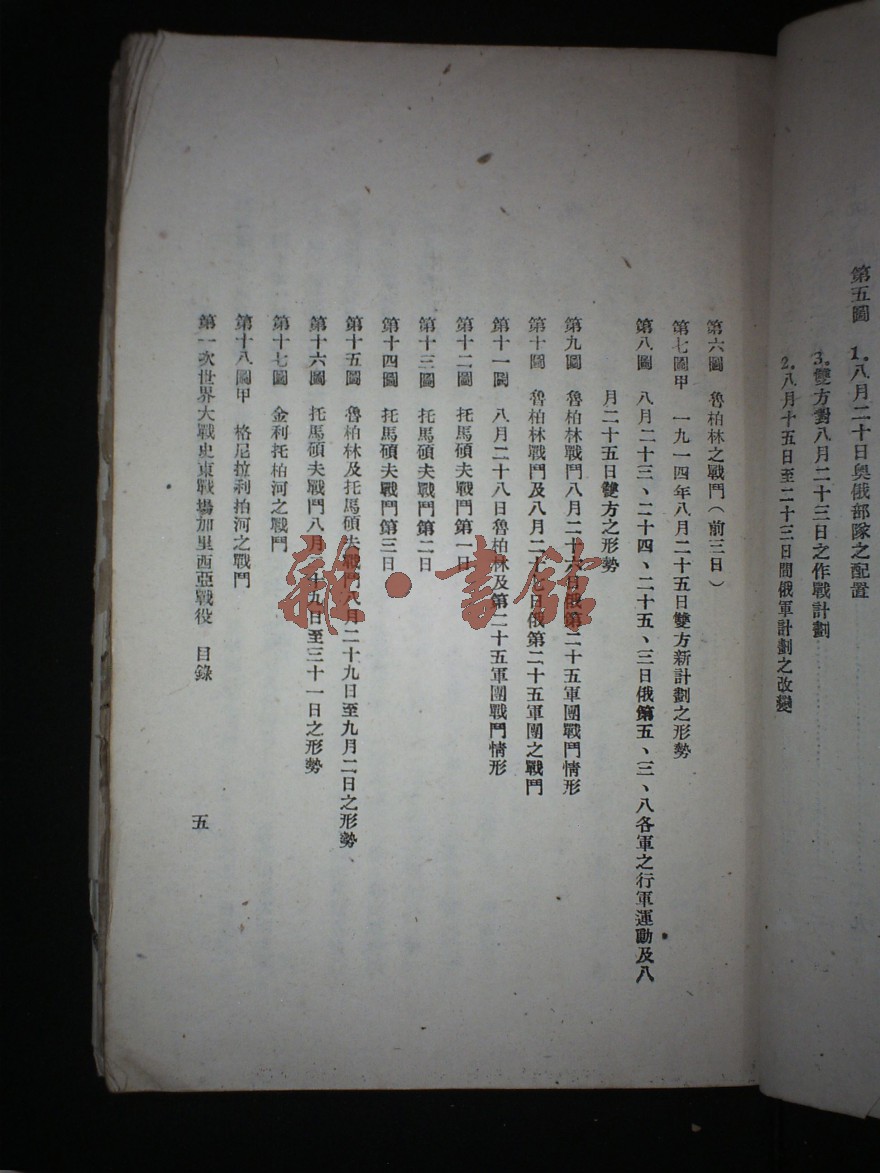 第五圖　1.八月二十日奧俄部隊之配置
3.雙方對八月二十三日之作戰計劃
2.八月十五日至二十三日間俄軍計劃之改變
第六圖　魯柏林之戰鬥（前三日）
第七圖甲　一九一四年八月二十五日雙方新計劃之形勢
第八圖　八月二十三、二十四、二十五、三日俄第五、三、八各軍之行軍運動及八
月二十五日雙方之形勢
第九圖　魯柏林戰鬥八月二十六日俄第二十五軍團戰鬥情形
第十圖　魯柏林戰鬥及八月二十七日俄第二十五軍團之戰鬥
第十一圖　八月二十八日魯柏林及第二十五軍團戰鬥情形
第十二圖　托馬碩夫戰鬥第一日
第十三圖　托馬碩夫戰鬥第二日
第十四圖　托馬碩夫戰鬥第三日
第十五圖　魯柏林及托馬碩夫戰鬥八月二十九日至九月二日之形勢、
第十六圖　托馬碩夫戰鬥八月二十九日至三十一日之形勢
第十七圖　金利托柏河之戰鬥
第十八圖甲　格尼拉利拍河之戰鬥
第一次世界大戰史東戰場加里西亞戰役　目錄
五
雜·書館